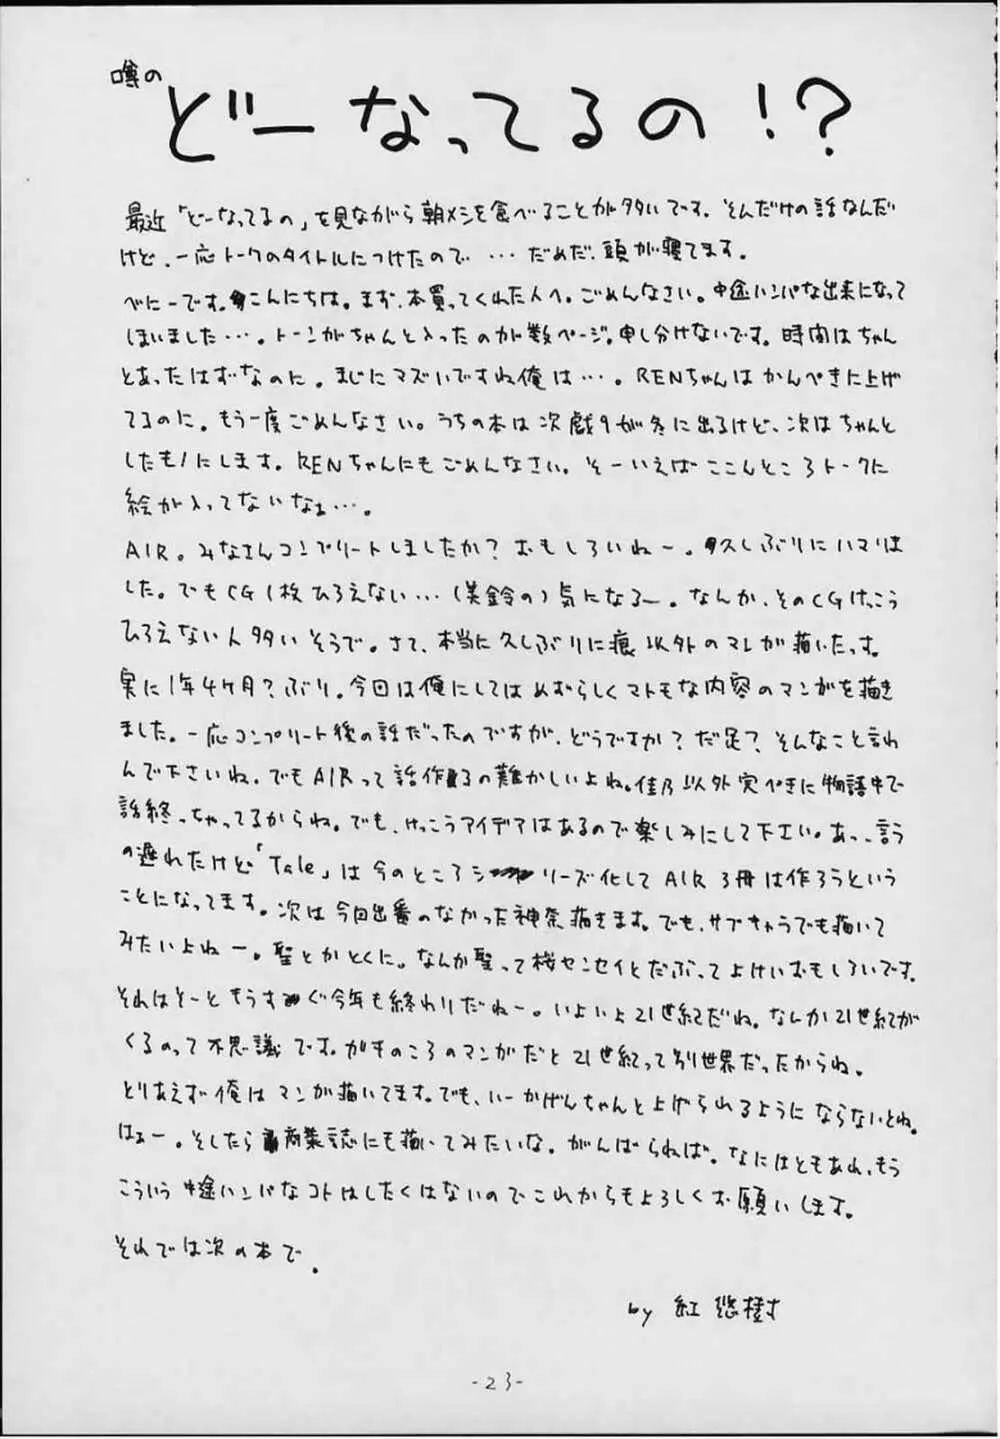 噂の
どーなってるの!?
最近「どーなってるの」を見ながら朝メシを食べることが多いです。そんだけの話なんだ
けど、一応トークのタイトルにつけたので…だめだ、頭が寝てます。
べにーです。こんにちは。まず、本買ってくれた人へ。ごめんなさい。中途ハンパな出来になって
しまいました…。トーンがちゃんと入ったのが数ページ。申し分けないです。時間はちゃん
とあったはずなのに。まじにマズいですね俺は…。RENちゃんはかんぺきに上げ
てるのに。もう一度ごめんなさい。うちの本は次戯9が冬に出るけど、次はちゃんと
したものにします。RENちゃんにもごめんなさい。そーいえばここんところトークに
絵が入ってないなぁ…。
AIR。みなさんコンプリートしましたか?おもしろいねー。久しぶりにハマりま
した。でもCG1枚ひろえない…(美鈴の)気になるー。なんか、そのCGけっこう
ひろえない人多いそうで。さて、本当に久しぶりに痕以外のマンガ描いたっす。
実に1年4ヶ月?ぶり。今回は俺にしてはめずらしくマトモな内容のマンガを描き
ました。一応コンプリート後の話だったのですが、どうですか?だ足?そんなこと言わ
んで下さいね。でもAIRって話作るの難かしいよね。佳乃以外完ぺきに物語中で
話終っちゃってるからね。でも、けっこうアイデアはあるので楽しみにして下さい。あっ、言う
の遅れたけど「Tale」は今のところシリーズ化してAIR3冊は作ろうという
ことになってます。次は今回出番のなかった神奈描きます。でも、サブキャラでも描いて
みたいよねー。聖とかとくに。なんか聖って桜センセイとだぶってよけいおもしろいです。
それはそーともうすぐ今年も終わりだねー。いよいよ21世紀だね。なんか21世紀が
くるのって不思議です。ガキのころのマンガだと21世紀って別世界だったからね。
とりあえず俺はマンが描いてます。でも、いーかげんちゃんと上げられるようにならないとね。
はぁー。そしたら商業誌にも描いてみたいな。がんばらねば。なにはともあれ、もう
こういう中途ハンパなコトはしたくはないのでこれからもよろしくお願いします。
それでは次の本で。
by 紅 悠樹
-23-